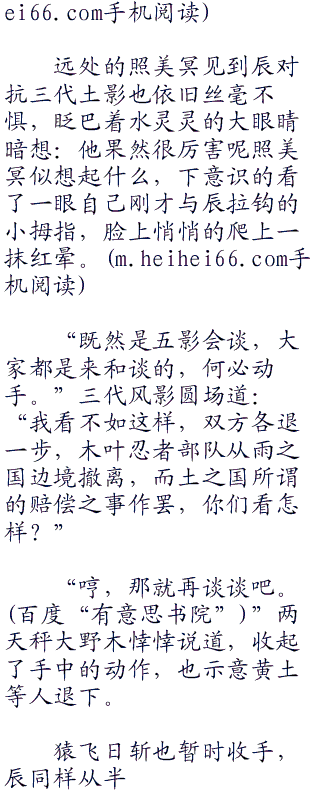 ei66.com手机阅读)
远处的照美冥见到辰对
抗三代土影也依旧丝毫不
惧，眨巴着水灵灵的大眼睛
暗想：他果然很厉害呢照美
冥似想起什么，下意识的看
了一眼自己刚才与辰拉钩的
小拇指，脸上悄悄的爬上一
抹红晕。(m.heihei66.com手
机阅读)
“既然是五影会谈，大
家都是来和谈的，何必动
手。”三代风影圆场道：
“我看不如这样，双方各退
一步，木叶忍者部队从雨之
国边境撤离，而土之国所谓
的赔偿之事作罢，你们看怎
样？”
“哼，那就再谈谈吧。
(百度“有意思书院”)”两
天秤大野木悻悻说道，收起
了手中的动作，也示意黄土
等人退下。
猿飞日斩也暂时收手，
辰同样从半